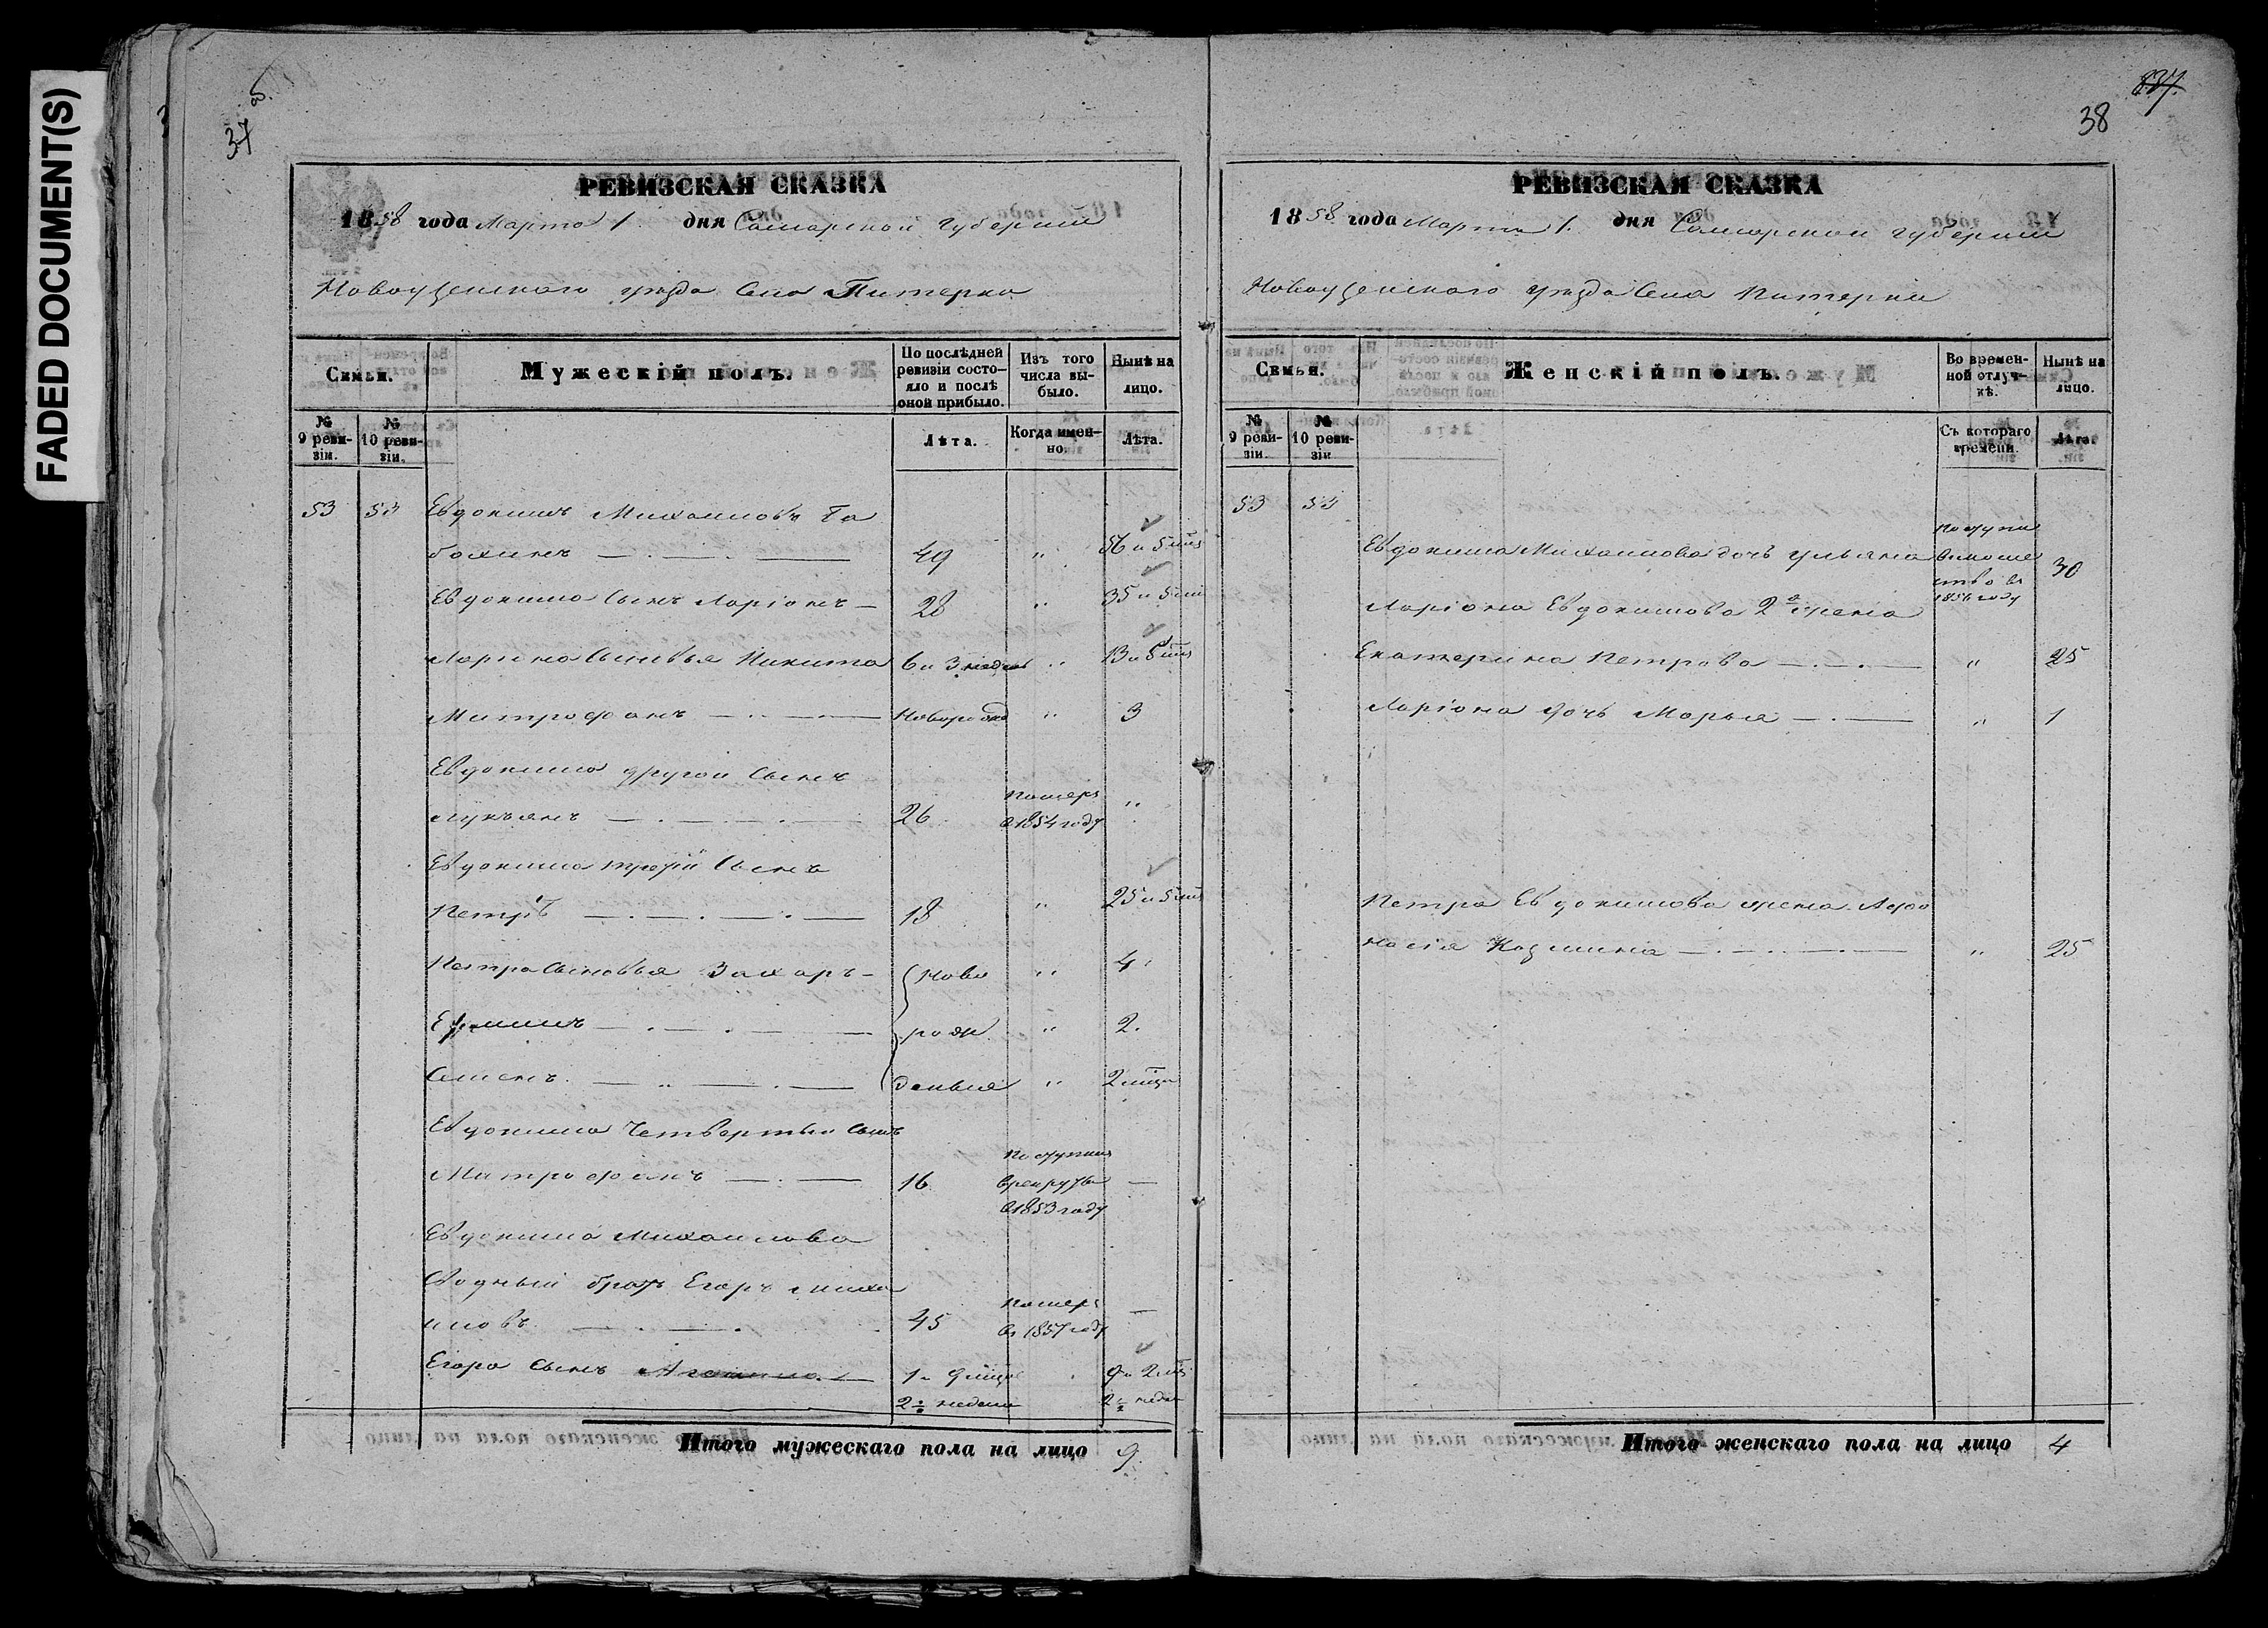 FADED DOCUMENT(S)
37
об.
РЕВИЗСКАЯ СКАЗКА
1858 года Марта 1. дня Самарской губернии
Новоузенского уезда Села Питерки
Семьи.
Мужескій полъ.
По послѣдней ревизіи состо-
яло и послѣ
оной прибыло.
Изъ того
числа вы-
было.
Нынѣ на
лицо.
№
9 реви-
зіи.
№
10 реви-
зіи.
Лѣта.
Когда имен-
но.
Лѣта.
53 53 Евдокимъ Михаиловъ
49 " 56 и 5 мцъ
Евдокима Сынъ Ларіонъ 28 " 35 и 5 мцъ
Лариона Сыновья Никита 6 и 3 недел " 13 и мцъ
Митрофанъ Новорожд " 3
Евдокима другой Сынъ
Лукъянъ 26 померъ
в 1854 году "
Евдокима третий Сынъ
Петръ 18 " 25 и 5 мцъ
Петра Сыновья Захаръ Ново " 4
Ефимъ рож " 2.
Семенъ. денныя " 2 мца
Евдокима Четвертый Сынъ
Митрофанъ 16 поступил
в рекруты
в 1853 году
Евдокима Михаилова
Сводный братъ Егоръ Миха
иловъ 45 померъ
въ 1857 году
Егора Сынъ 1 и 9 мцъ 9 и 2 мца
2 недели 2 недел
Итого мужескаго пола на лицо 9.
837.
38
РЕВИЗСКАЯ СКАЗКА
1858 года Марта 1. дня Самарской губернии
Новоузенского уезда Села Питерки
Семьи.
Женскій полъ.
Во времен-
ной отлуч-
кѣ.
Нынѣ на
лицо.
№
9 реви-
зіи.
№
10 реви-
зіи
Съ котораго
времени.
Лѣта.
53 53
Евдокима Михаилова дочь Ульяна 30
1856 году
Ларіона Евдокимова 2я жена
Екатерина Петрова " 25
Ларіона дочь Марья " 1
Петра Евдокимова жена Афо
насія Козмина " 25
Итого женскаго пола на лицо 4